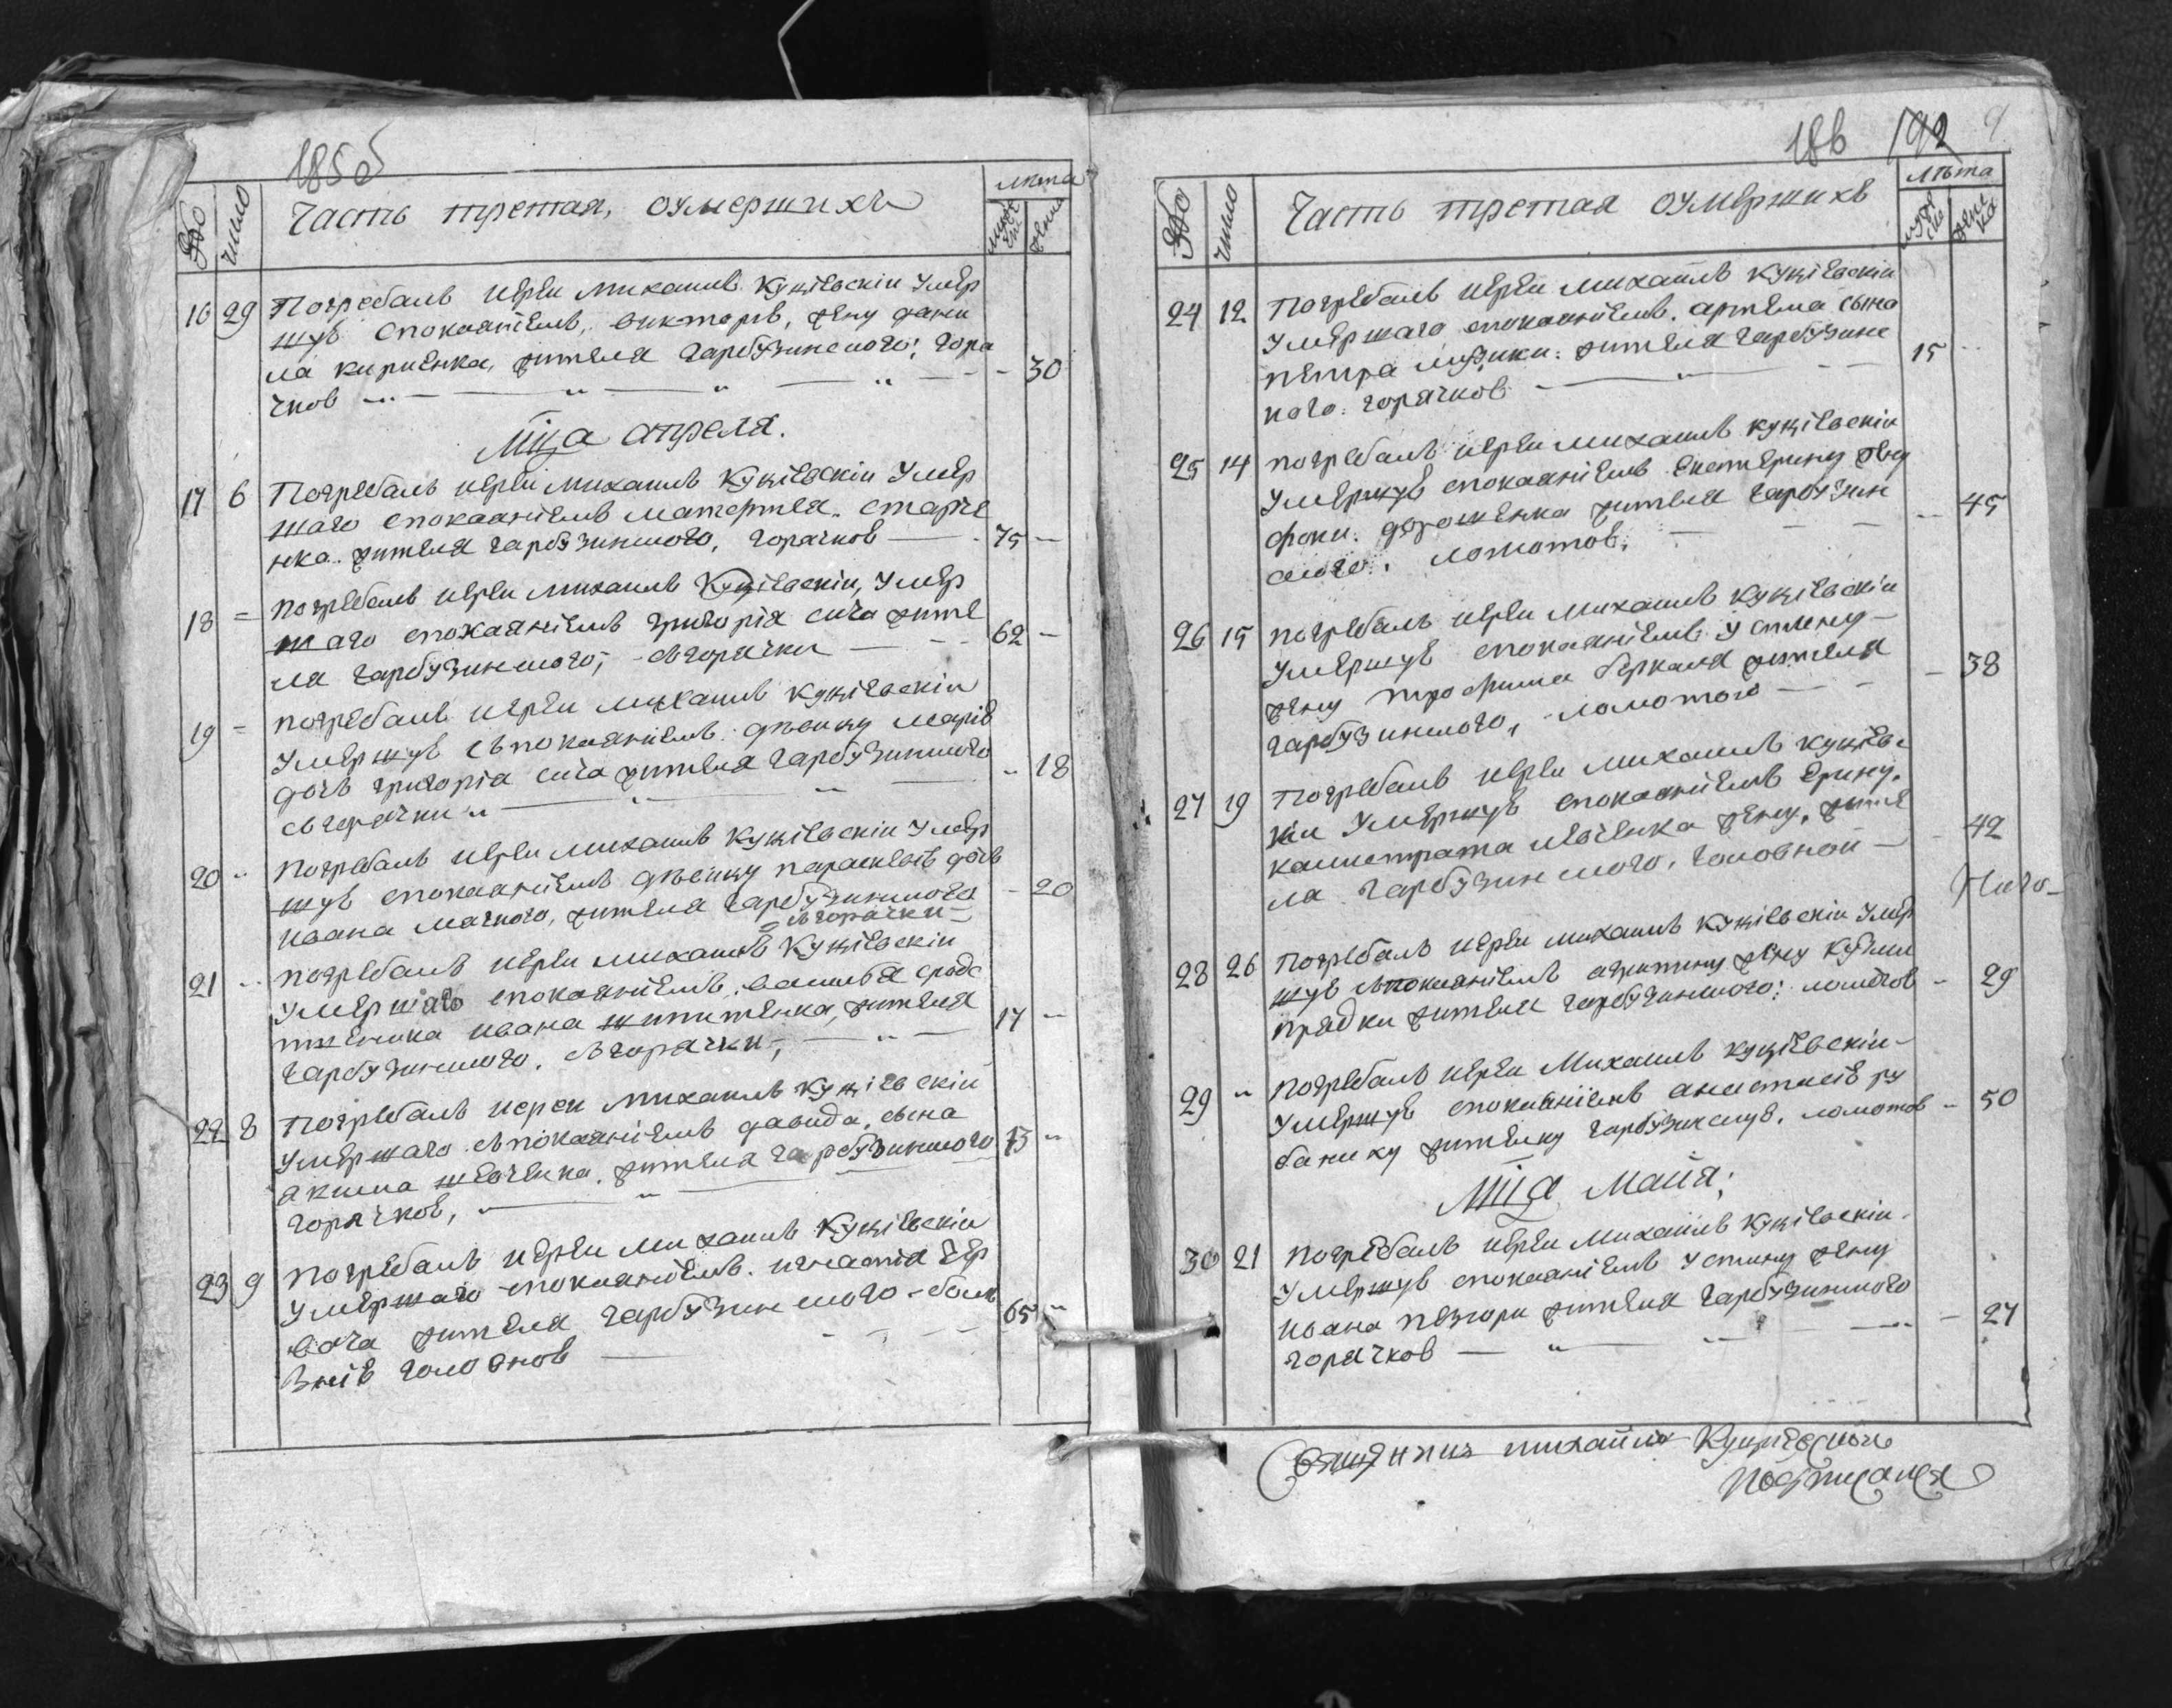 185 б
Число
Часть третая, оумершихъ
лѣта
16 29 Погребалъ иерей михаилъ Куцѣвскїи Умер
шую спокаянїемъ, викторїю, жену дани
ла кириенка, жителя гарбузинского; горя
чкою - 30
Мца апреля.
17 6 Погребалъ иерей михаилъ Куцѣвскїи Умер
шаго спокаянїемъ матфтея
нка. жителя гарбузинского, горячкою 75
18 = погребалъ иерей михаилъ Куцѣвскїи, Умер
шаго спокаянїемъ григорїя сича жите
ля гарбузинского, - зъгорячки 62
19 = погребалъ иерей михаилъ куцѣвскїи
Умершую съпокаянїемъ. дѣвицу марїю
дочь григорїа сича жителя гарбузинского
зъгорячки 18
20 погребалъ иерей михаилъ куцѣвскїи Умер
шую спокаянїемъ дѣвицу параскевїю дочь
ивана мачного, жителя гарбузинского 20
зъгорячки
21 погребалъ иерей михаилъ Куцѣвскїи
Умершаго спокаянїемъ, василья сродс
твеника ивана жителя
гарбузинского. зъгорячки, 17
22 8 Погребалъ иереи михаилъ куцѣвскїи
Умершаго съпокаянїемъ давида, сына
якима шевченка. жителя гарбузинского 13
горячкою,
23 9 погребалъ иерей михаилъ куцѣвскїи
Умершаго спокаянїемъ. игнатїя Чер
вача жителя гарбузинского - болѣ
знїю головною 65
186 192
Число
Часть третая оумершихъ
лѣта
24 12 Погребалъ иерей михаилъ куцѣвскїи
Умершаго спокаянїемъ. артема сына
петра музики: жителя гарбузинс
кого: горячкою 15
25 14 погребалъ иерей михаилъ куцѣвскїи
Умершую спокаянїемъ Екатерину жену
фоки. дорошенка жителя гарбузин
ского. ломотою. 45
26 15 погребалъ иерей михаилъ куцѣвскїи
Умершую спокаянїемъ Устину
жену трофима беркана жителя
гарбузинского, ломотою 38
27 19 Погребалъ иерей михаилъ куцѣвс
кїи Умершую спокаянїемъ Ерину.
калистрата шевченка жену, жите
ля гарбузинского. головною 42
28 26 Погребалъ иерей михаилъ куцѣвскїи Умер
шую съпокаянїемъ агипину жену Кузми
прядки жителя гарбузинского: ломотою 29
29 погребалъ иерей Михаилъ куцѣвскїи
Умершую спокаянїемъ анастасїю ру
банику жителку гарбузинскую. ломотою 50
Мца Маия;
30 21 погребалъ иерей Михаилъ куцѣвскїи.
Умершую спокаянїемъ Устину жену
ивана жителя гарбузинского
горячкою 27
Священникъ михаилъ
подписался